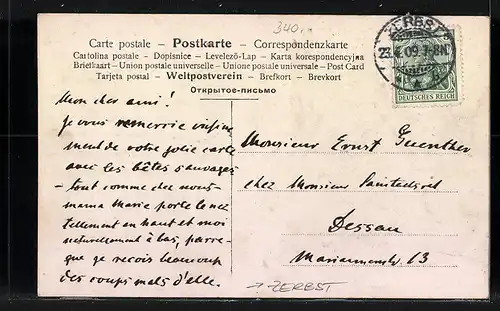 340.
Carte postale – Postkarte – Correspondenzkarte
Cartolina postale – Dopisnice – Levelező-Lap – Karta korespondencyjna
Briefkaart – Union postale universelle – Unione postale universale – Post Card
Tarjeta postal – Weltpostverein – Brefkort – Brevkort
Открытое-письмо
ZERBST
23.4.09. 7-8N.
DEUTSCHES REICH
Mon cher ami!
je vous remercie infini
ment de votre jolie carte
avec les bêtes sauvages
– tout comme chez nous –
mama Marie porte le nez
tellement en haut et moi
naturellement à bas, parce-
que je reçois beaucoup
des coups d'elle.
Monsieur Ernst Guenther
chez Monsieur Sanitätsrat
Dessau
13
→ ZERBST